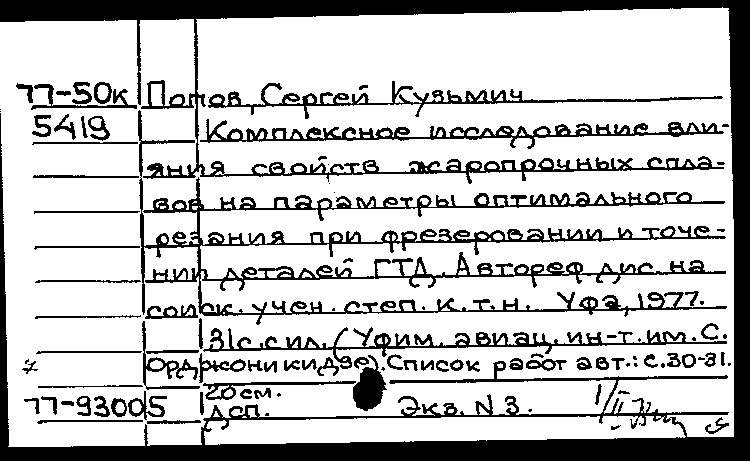 77-50к Попов, Сергей Кузьмич
5419 Комплексное исследование вли-
яния свойств жаропрочных спла-
вов на параметры оптимального
резания при фрезеровании и точе-
нии деталей ГТД. Автореф дис. на
соиск. учен. степ. к.т.н. Уфа, 1977.
31с. с ил. (Уфим. авиац. ин-т. им. С.
Орджоникидзе). Список работ авт.: с.30-31.
20 см.
77-93005 ДСП. Экз. N 3.